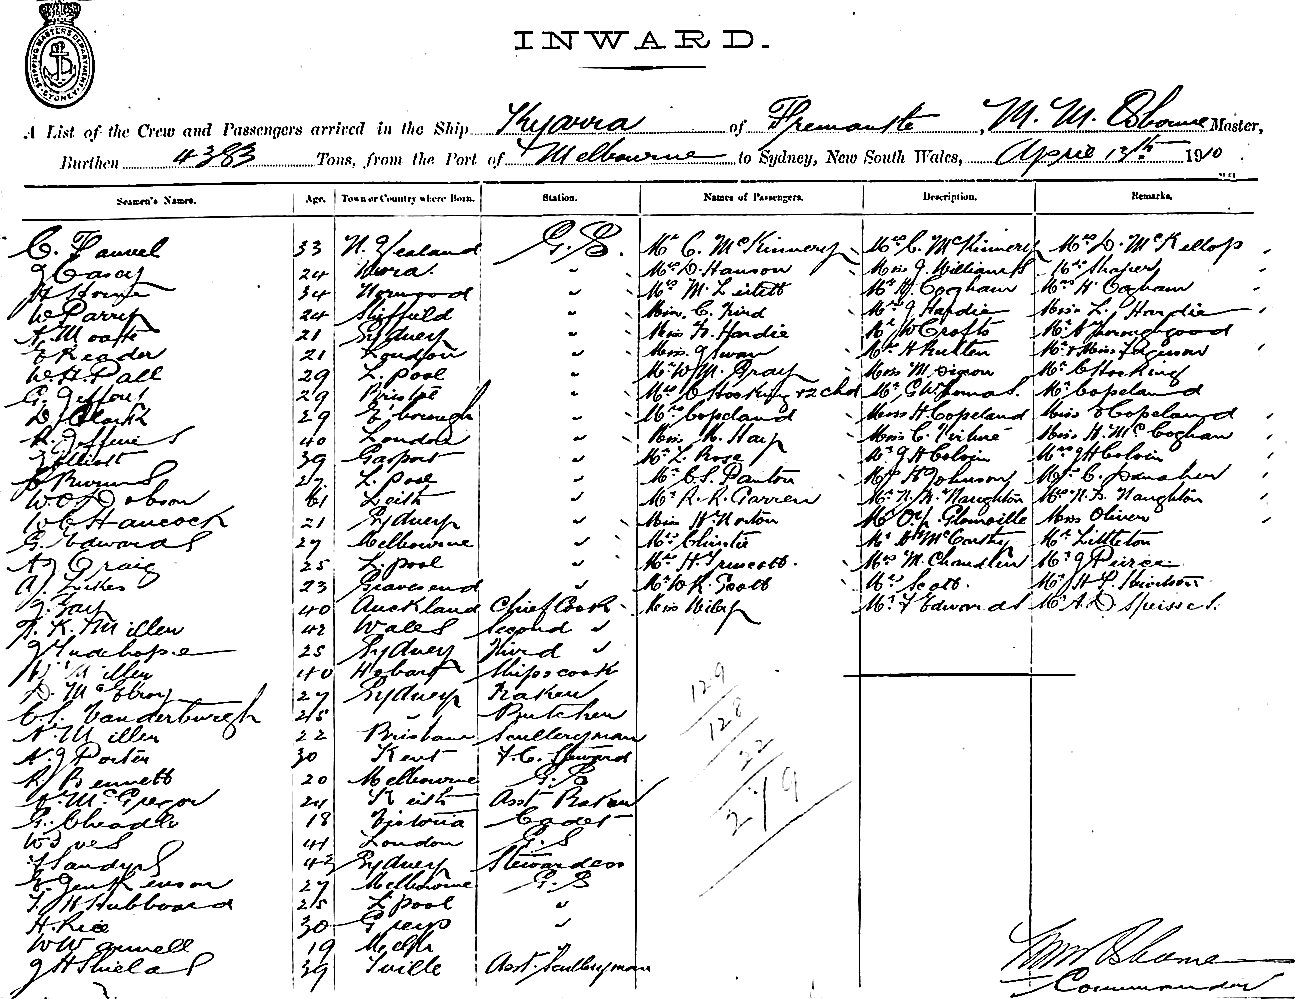 SHIPPING MASTER'S DEPARTMENT SYDNEY
INWARD.
A List of the Crew and Passengers arrived in the Ship Kyarra of Fremantle, M. M. Osborne Master,
Burthen 4383 Tons, from the Port of Melbourne to Sydney, New South Wales, April 13th 1910
Seamen's Names. Age. Town or Country where Born. Station. Names of Passengers. Description. Remarks.
33 N. Zealand G.S. Mr C. McKinnery Mrs C. McKinnery Mrs D. McKellop
J Casey 24 " Mrs D. Hanson Miss J. Williams
H Horne 34 Norwood " Mrs M. Mr H. Cogham Mrs H. Cogham
W Parry 24 Sheffield " Miss C. Mr J Hardie Miss L. Hardie
21 Sydney " Miss N. Hardie Mr W Crofts Mr
E Reader 21 London " Miss J Swan Mr & Miss Ferguson
W. H. Ball 29 L. pool " Mr W. M. Gray Miss M. Mr C Hocking
29 Bristol " Mrs C Hocking + 2 chd Mr G W Thomas. Mr Copeland
D. J Clark 29 " Mrs Copeland Miss H. Copeland Miss Copeland
R. Jefferies 40 London " Miss M. Hay Miss C. Virtue Miss H. McCoghan
J Elliott 39 Gasport " Mr L. Rose Mr J H Colvin Mrs J H Colvin
27 L. pool " Mr C. S. Panton Mr H Johnson Mr C.
W. C. Dobson 61 Leith " Mr R. R. Garren Mr N. N. Naughton Mrs N. N. Naughton
W C Hancock 21 Sydney " Miss H. Norton Miss Oliver
G. Edwards 27 Melbourne " Mrs Christie McCarthy Mr Littleton
A J Craig 25 L. pool " Mrs H. Truscott. Mrs M. Chandler Mr J Peirce
A. J. Lukes 23 Gravesend " Mr W R. Scott Mrs Scott.
J. Gay 40 Auckland Chief Cook Miss Wiley Mr F Edwards Mr A. D
A. K. Millen 42 Wales Second "
J Tudehope 25 Sydney Third "
Millen 40 Hobart Ships cook
D. McElroy 27 Sydney Baker
C. S. Vanderburgh 25 " Butcher
N. Millen 22 Brisbane Sculleryman
N. J Porter 30 Kent F. C. Steward
R Bennett 20 Melbourne G. S
W. McGregor 24 Keith Asst Baker
G. Cheadle 18 Victoria Cadet
W Ives 41 London G. S
J Sandys 42 Sydney Stewardess
Jenkenson 27 Melbourne G. S
F. H Hubboard 25 L. pool "
H. Rice 30 Grays "
W Wannell 19 Melb. "
J H Shields 39 T'ville Asst. Sculleryman
129
128
22
279
Osborne
Commander